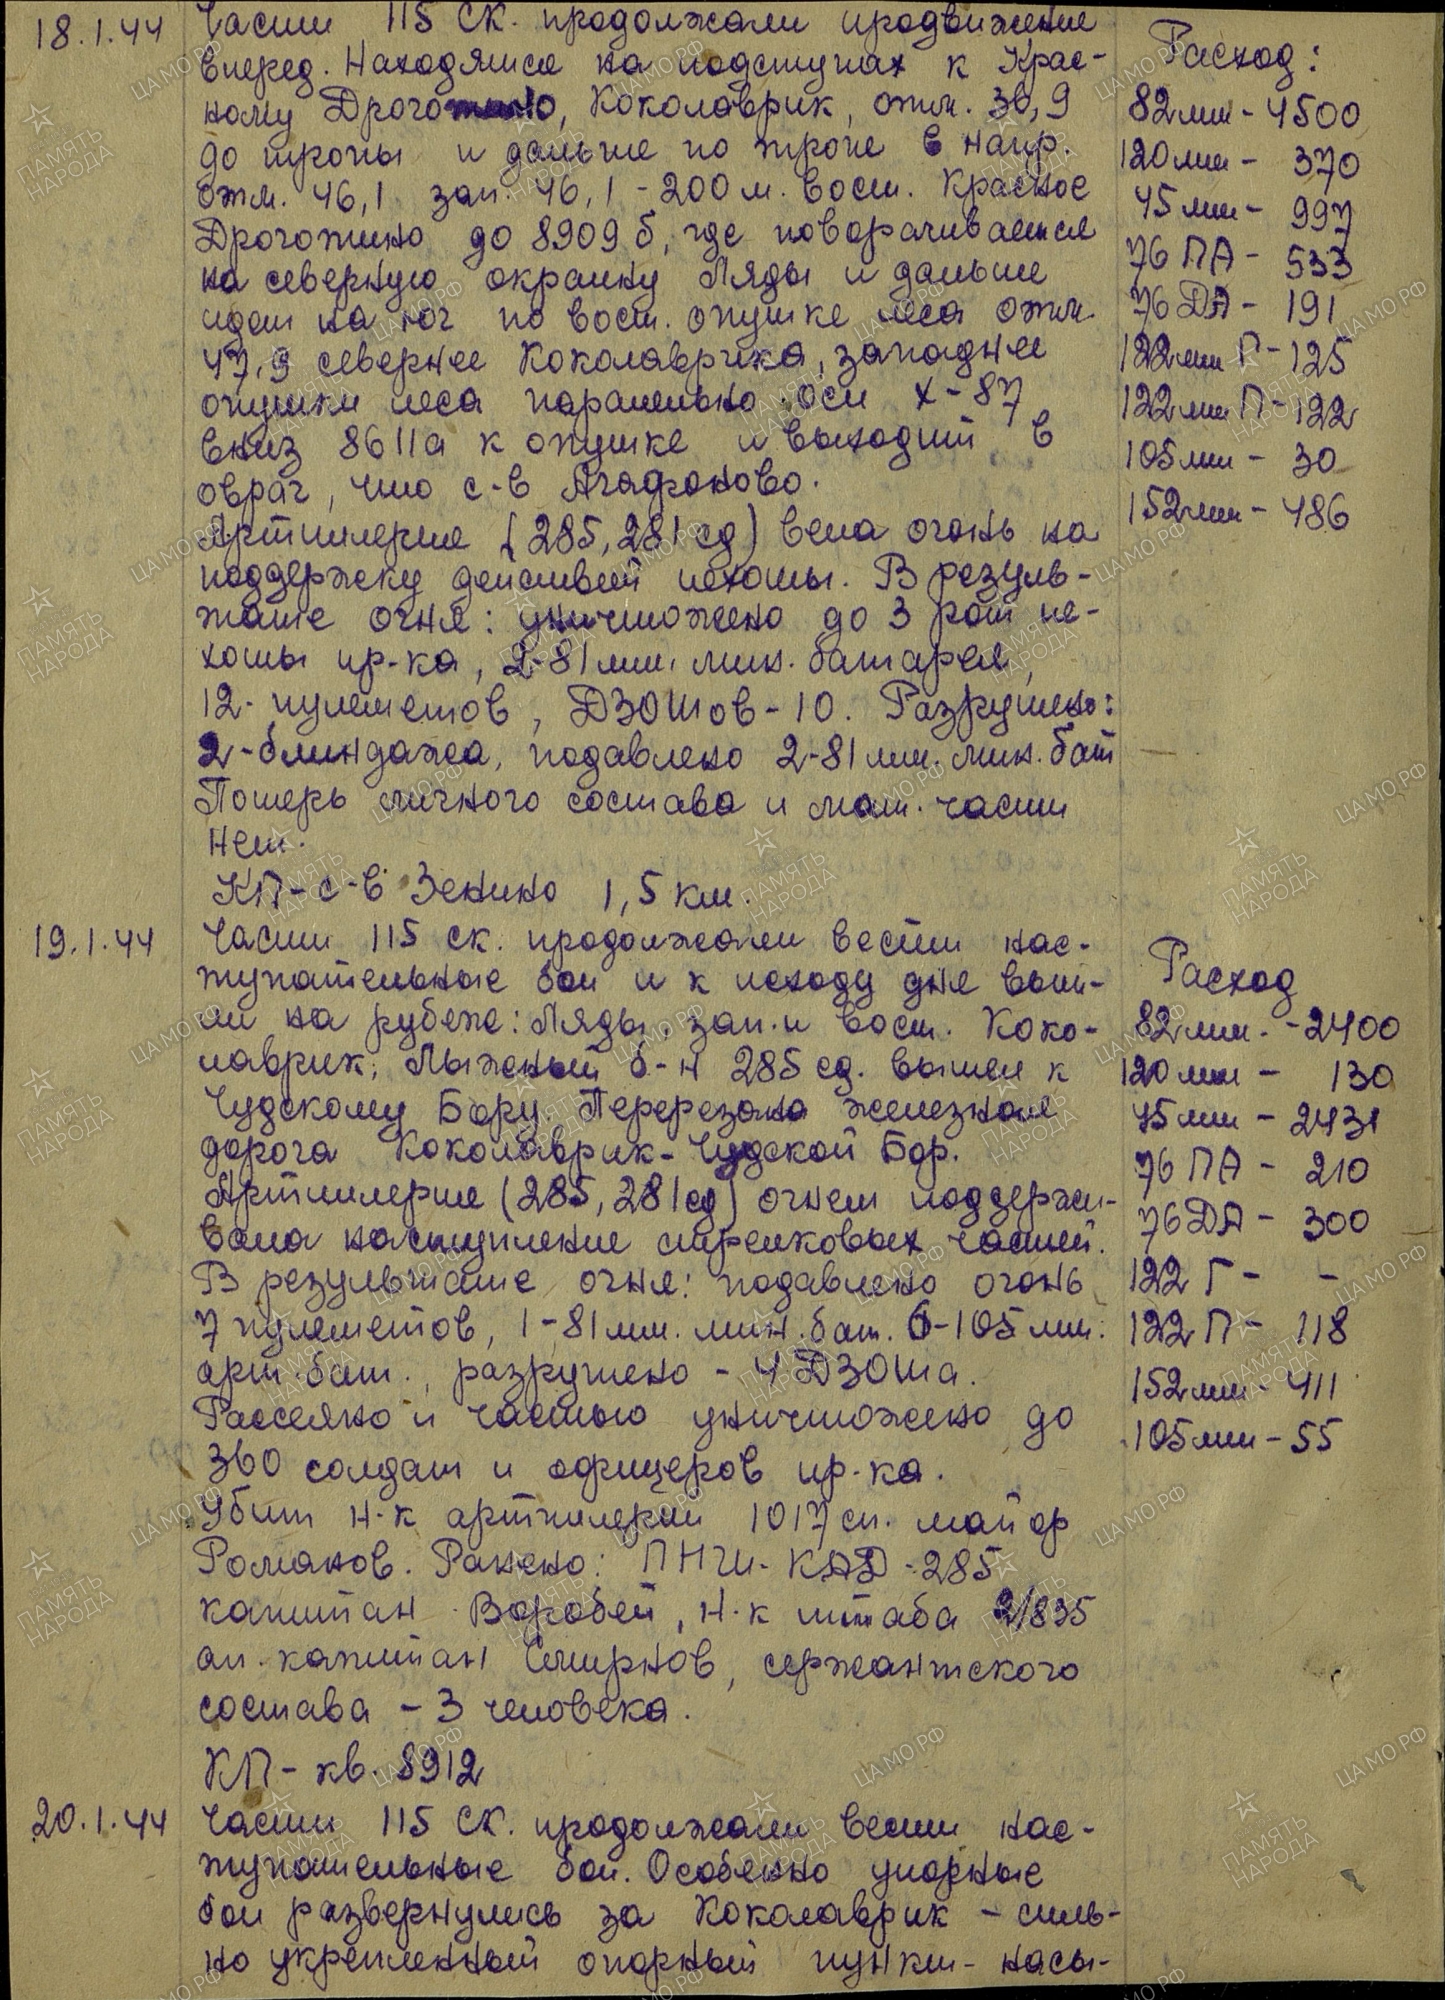 18.1.44
Части 115 СК. продолжали продвижение
вперед. Находятся на подступах к Крас-
ному Дрогожино, Коколаврик, отм. 36,9
до тропы и дальше по тропе в напр.
отм. 46,1 зап. 46,1 - 200 м. вост. Красное
Дрогожино до 8909 б, где поворачивается
на северную окраину Ляды и дальше
идет на юг по вост. опушке леса отм.
47,9 севернее Коколаврика, западнее
опушки леса паралельно оси х-87
вниз 8611а к опушке и выходит в
овраг, что с-в Агафоново.
Артиллерия (285, 281 сд) вела огонь на
поддержку действий пехоты. В резуль-
тате огня: уничтожено до 3 рот пе-
хоты пр-ка, 2-81 мм. мин. батареи,
12- пулеметов, ДЗОТов - 10. Разрушено:
2-блиндажа, подавлено 2-81 мм. мин. бат
Потерь личного состава и мат. части
нет.
КП - с-в Зенино 1,5 км.
Расход:
82 мм - 4500
120 мм - 370
45 мм - 997
76 ПА - 533
76 ДА - 191
122 мм Г - 125
122 мм П - 122
105 мм - 30
152 мм - 486
19.1.44
Части 115 ск. продолжали вести нас-
тупательные бои и к исходу дня выш-
ли на рубеже: Ляды, зап. и вост. Коко-
лаврик. Лыжный б-н 285 сд. вышел к
Чудскому Бору. Перерезана железная
дорога Коколаврик - Чудской Бор.
Артиллерия (285, 281 сд) огнем поддержи-
вала наступление стрелковых частей.
В результате огня: подавлено огонь
7 пулеметов, 1-81 мм. мин. бат. 6-105 мм.
арт. бат., разрушено - 4 ДЗОТа.
Рассеяно и частью уничтожено до
360 солдат и офицеров пр-ка.
Убит Н-к артиллерии 1017 сп. майор
Романов. Ранено: ПНШ - КАД - 285
капитан Воробей, Н-к штаба 2/835
ап. капитан Смирнов, сержантского
состава - 3 человека.
КП - кв. 8912
Расход
82 мм. - 2400
120 мм - 130
45 мм - 2431
76 ПА - 210
76 ДА - 300
122 Г - -
122 П - 118
152 мм - 411
105 мм - 55
20.1.44
Части 115 СК. продолжали вести нас-
тупательные бои. Особенно упорные
бои развернулись за Коколаврик - силь-
но укрепленный опорный пункт - насы-